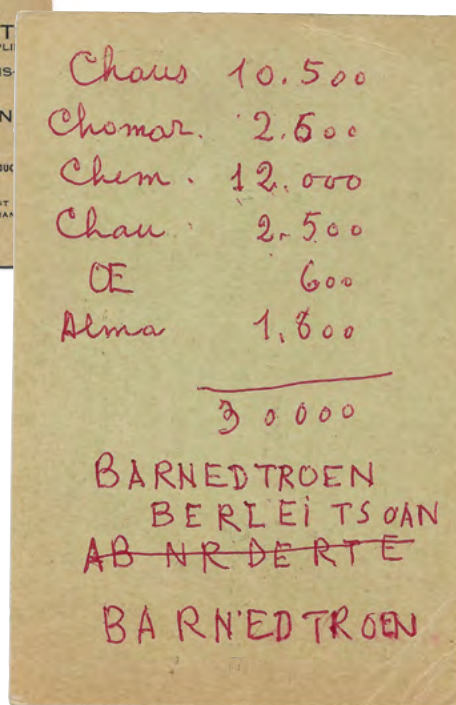 Chaus 10.500
Chomar. 2.600
Chem. 12.000
Chau. 2.500
OE 600
Alma 1.800
30000
BARNEDTROEN
BERLEITSOAN
AB NR DE RTE
BARN'EDTROEN